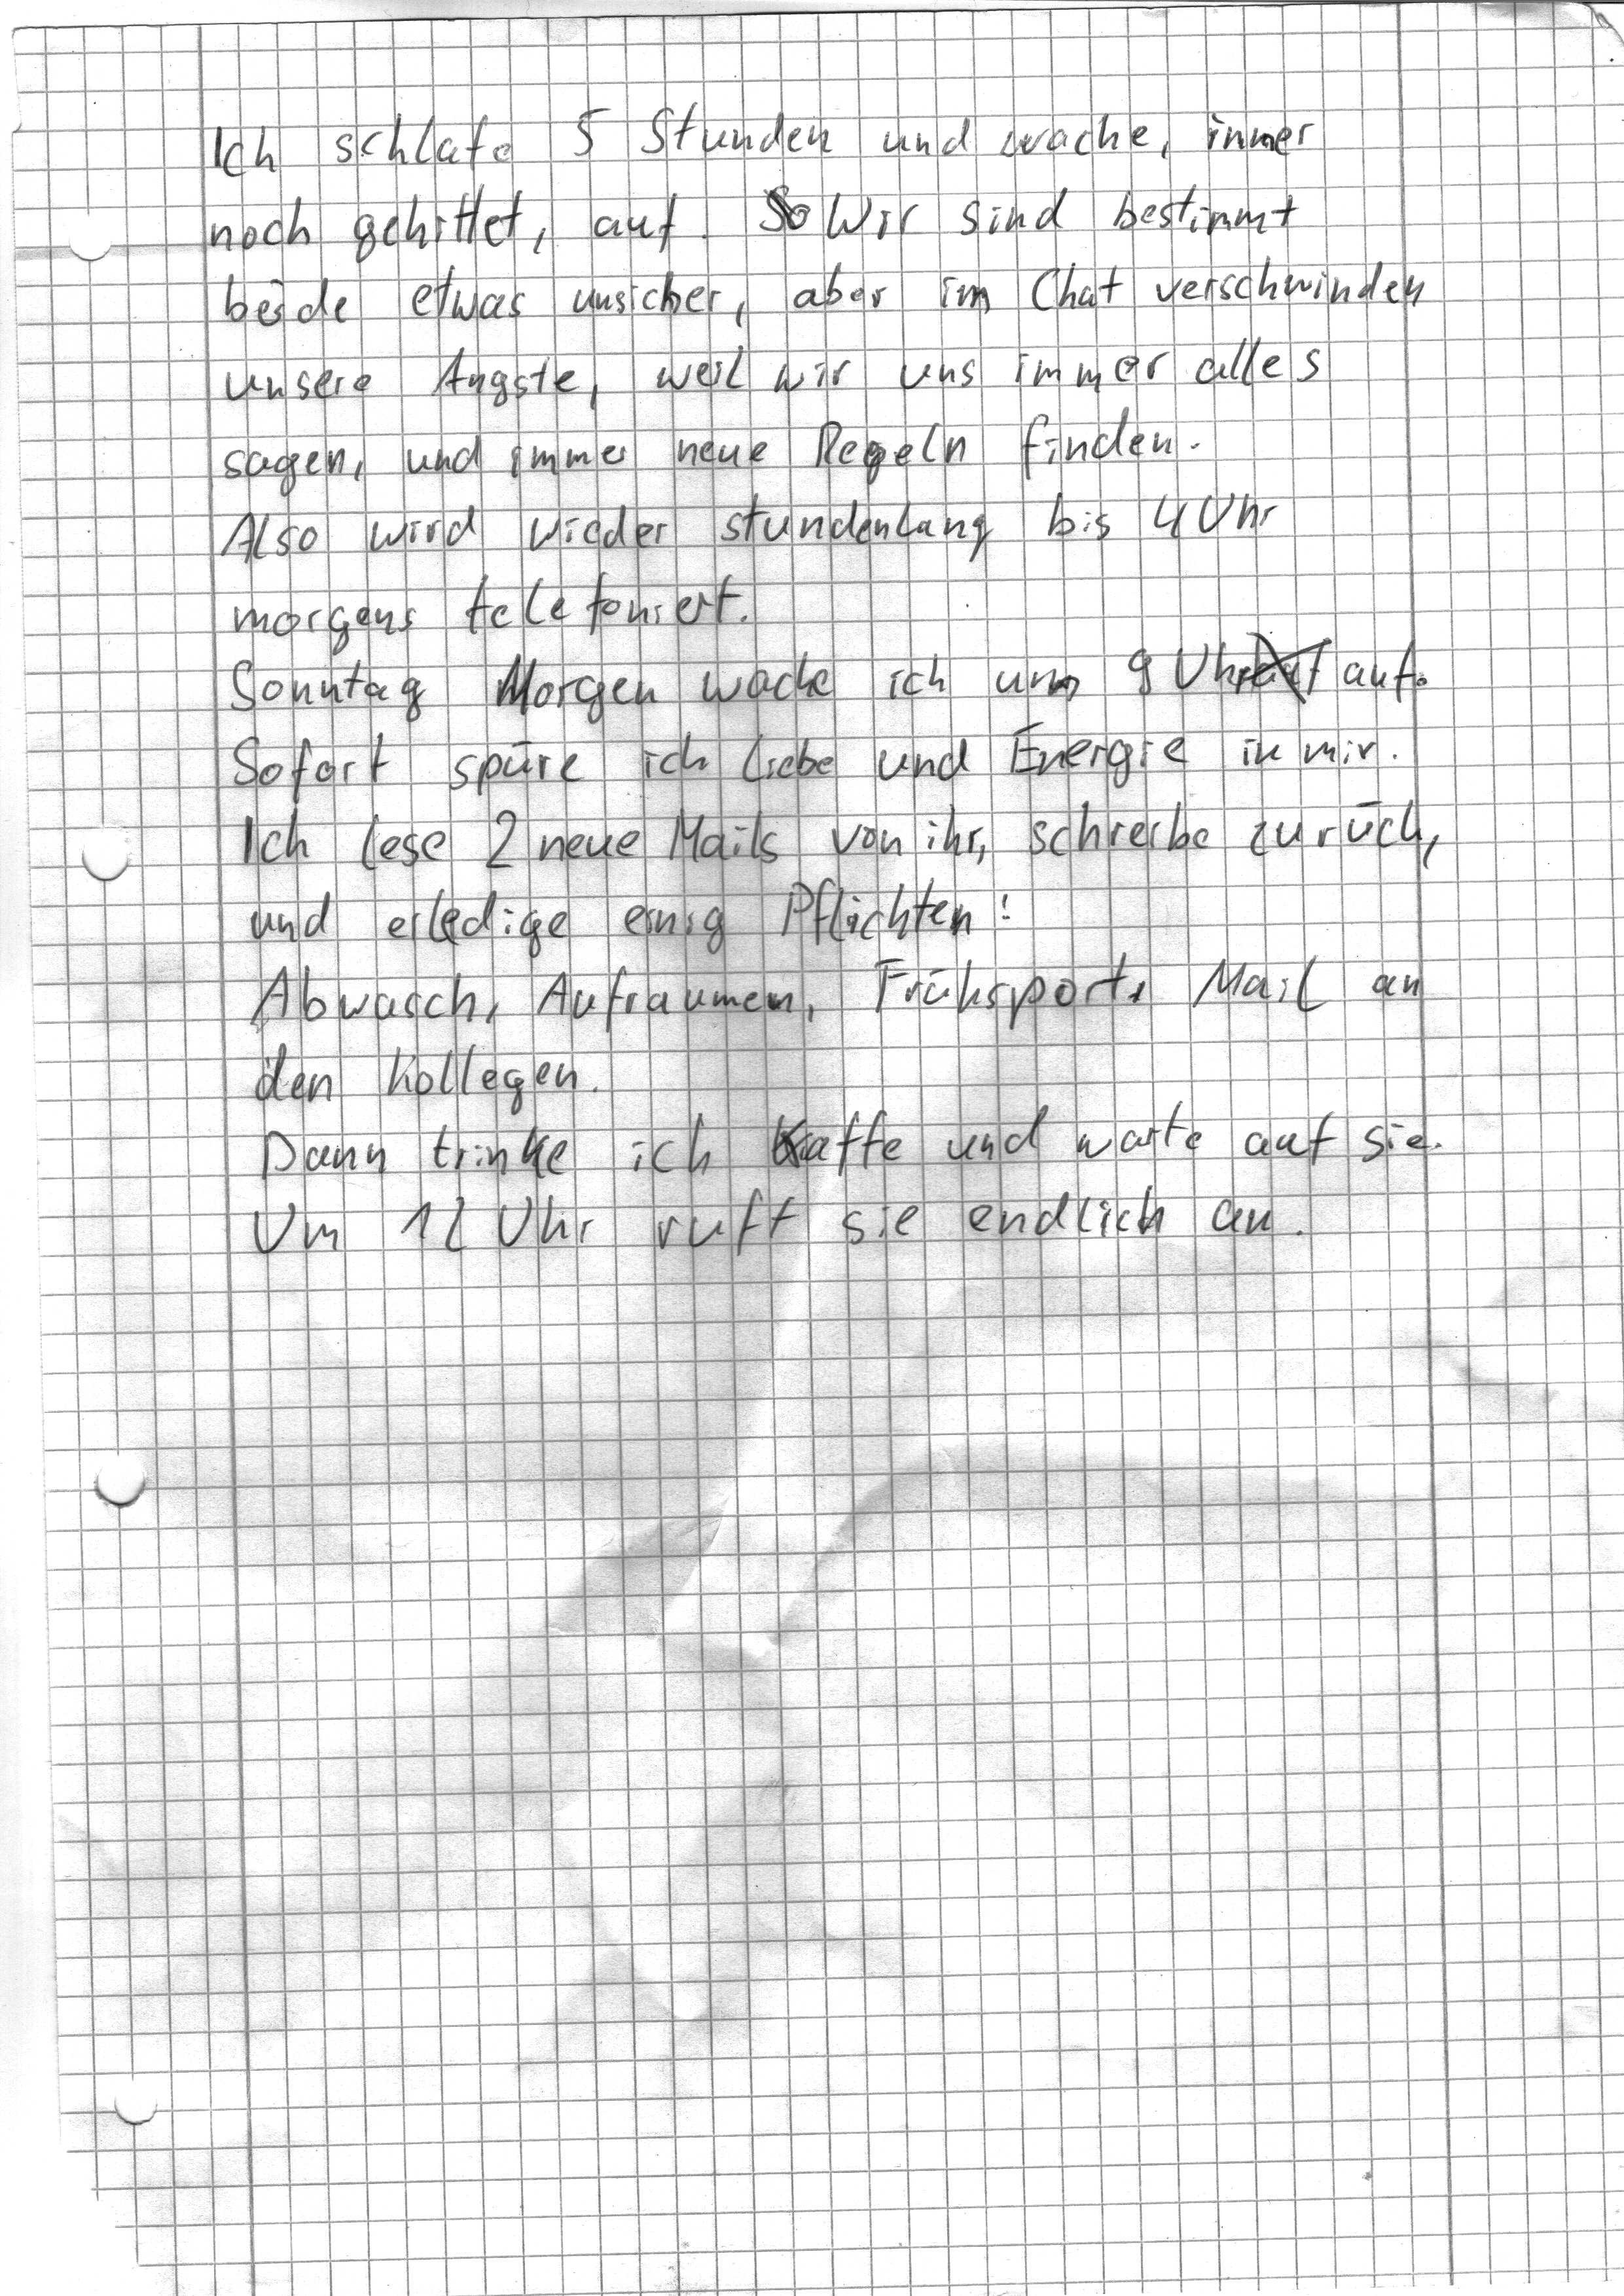 Ich schlafe 5 Stunden und wache, immer
noch gehittet, auf. So Wir sind bestimmt
beide etwas unsicher, aber im Chat verschwinden
unsere Ängste, weil wir uns immer alles
sagen, und immer neue Regeln finden.
Also wird wieder stundenlang bis 4 Uhr
morgens telefoniert.
Sonntag Morgen wache ich um 9 Uhr auf.
Sofort spüre ich Liebe und Energie in mir.
Ich lese 2 neue Mails von ihr, schreibe zurück,
und erledige einig Pflichten:
Abwasch, Aufräumen, Frühsport, Mail an
den Kollegen.
Dann trinke ich Kaffe und warte auf sie.
Um 12 Uhr ruft sie endlich an.